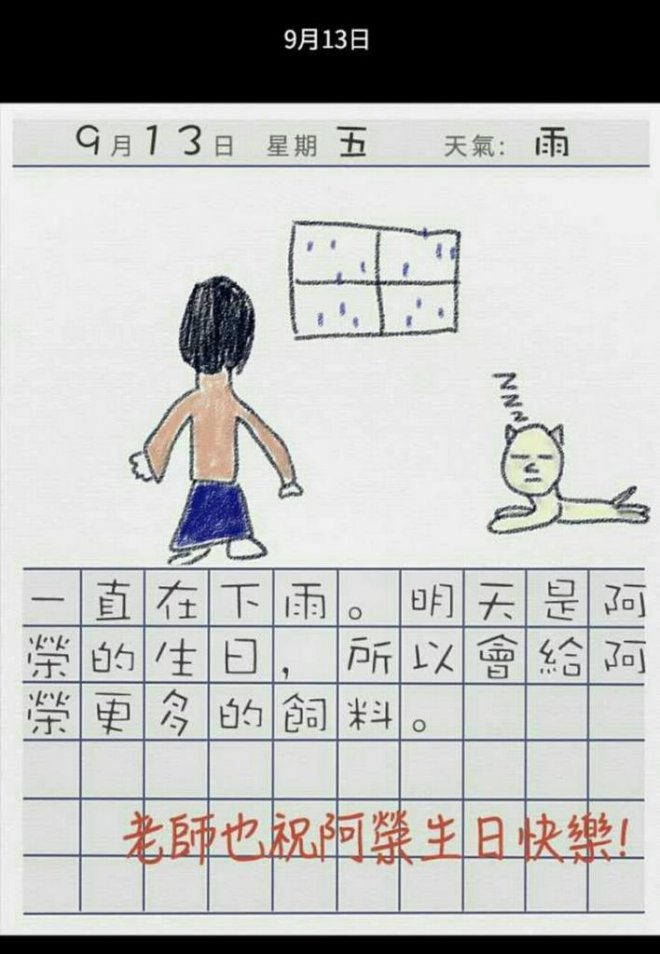 9月13日
9月13日 星期五 天氣: 雨
一直在下雨。明天是阿
榮的生日,所以會給阿
榮更多的飼料。
老師也祝阿榮生日快樂!
z
z
z